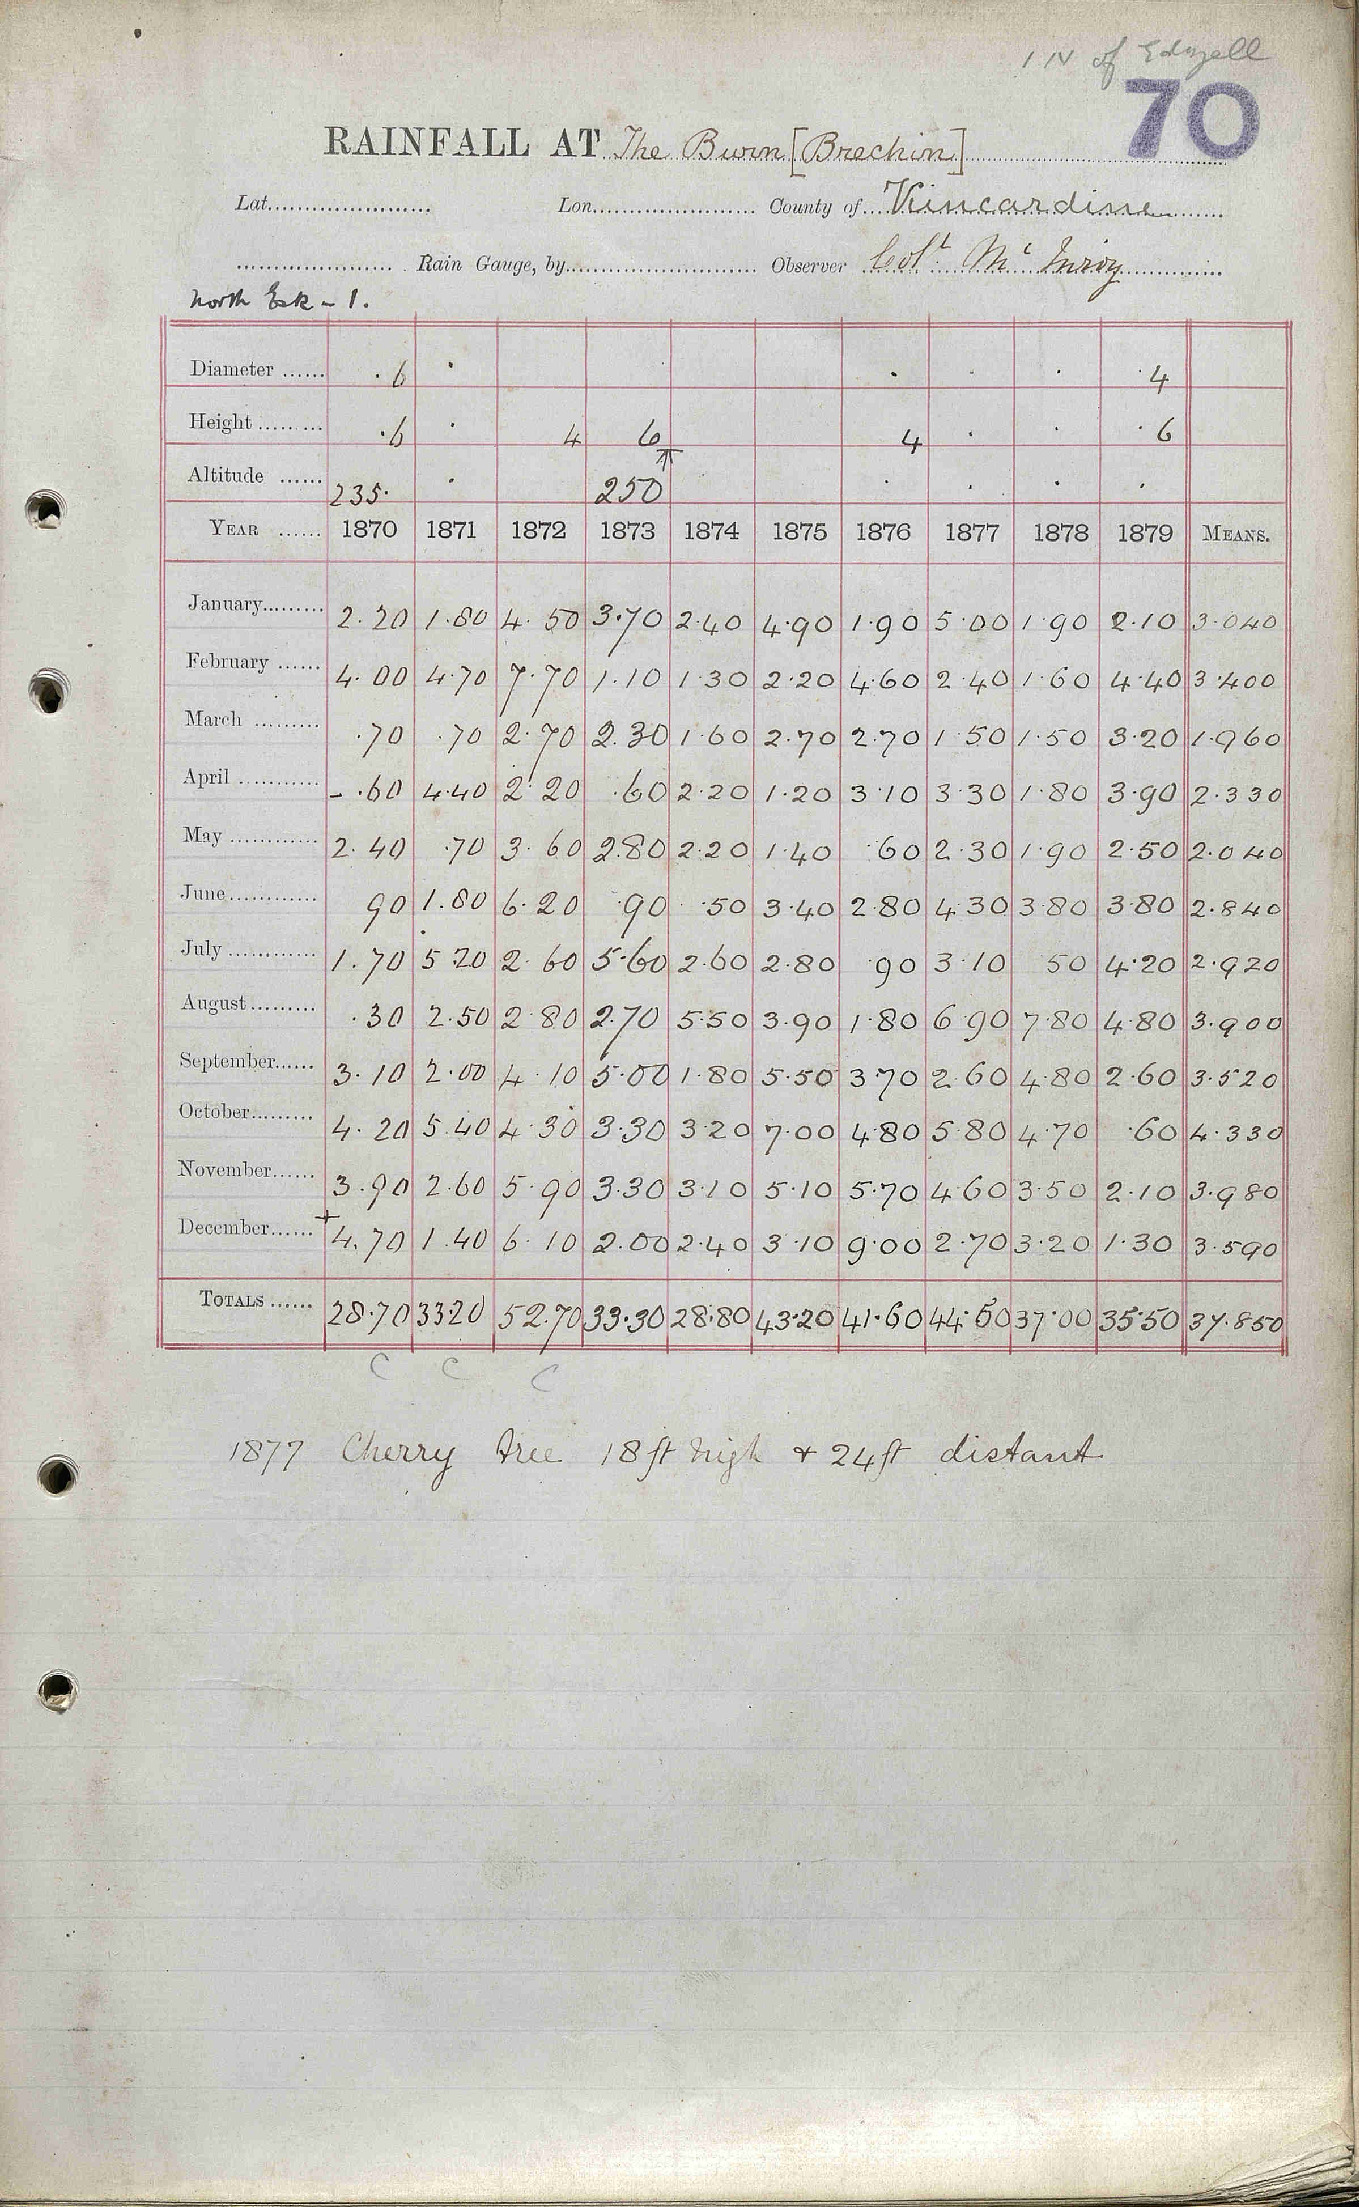 1 N of Edzell
70
RAINFALL AT The Burn [Brechin]
Lat. Lon. County of Kincardine
Rain Gauge, by Observer Colt. Mc Inroy
North Esk - 1.
Diameter ...... .6 . . . . . 4
Height ......... .6 . 4 6 4 . . . 6
Altitude ...... 235. . 250 . . . .
YEAR ...... 1870 1871 1872 1873 1874 1875 1876 1877 1878 1879 MEANS.
January......... 2.20 1.80 4.50 3.70 2.40 4.90 1.90 5.00 1.90 2.10 3.040
February ...... 4.00 4.70 7.70 1.10 1.30 2.20 4.60 2.40 1.60 4.40 3.400
March ......... .70 .70 2.70 2.30 1.60 2.70 2.70 1.50 1.50 3.20 1.960
April ............ - .60 4.40 2.20 .60 2.20 1.20 3.10 3.30 1.80 3.90 2.330
May ............ 2.40 .70 3.60 2.80 2.20 1.40 .60 2.30 1.90 2.50 2.040
June............ 90 1.80 6.20 .90 .50 3.40 2.80 4.30 3.80 3.80 2.840
July ............ 1.70 5.20 2.60 5.60 2.60 2.80 .90 3.10 50 4.20 2.920
August......... .30 2.50 2.80 2.70 5.50 3.90 1.80 6.90 7.80 4.80 3.900
September...... 3.10 2.00 4.10 5.00 1.80 5.50 3.70 2.60 4.80 2.60 3.520
October......... 4.20 5.40 4.30 3.30 3.20 7.00 4.80 5.80 4.70 .60 4.330
November...... 3.90 2.60 5.90 3.30 3.10 5.10 5.70 4.60 3.50 2.10 3.980
December...... + 4.70 1.40 6.10 2.00 2.40 3.10 9.00 2.70 3.20 1.30 3.590
TOTALS ...... 28.70 33.20 52.70 33.30 28.80 43.20 41.60 44.50 37.00 35.50 37.850
C C C
1877 Cherry tree 18ft high & 24ft distant